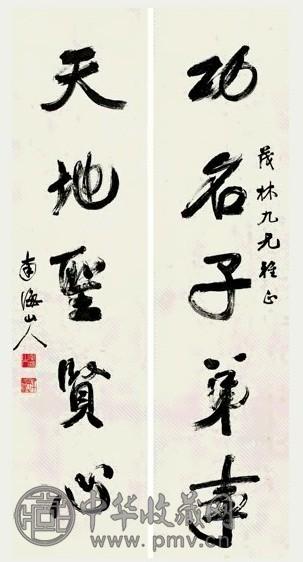 茂林九兄雅正
功名子弟事
天地聖賢心
南海山人
中华收藏网
www.pmv.cn